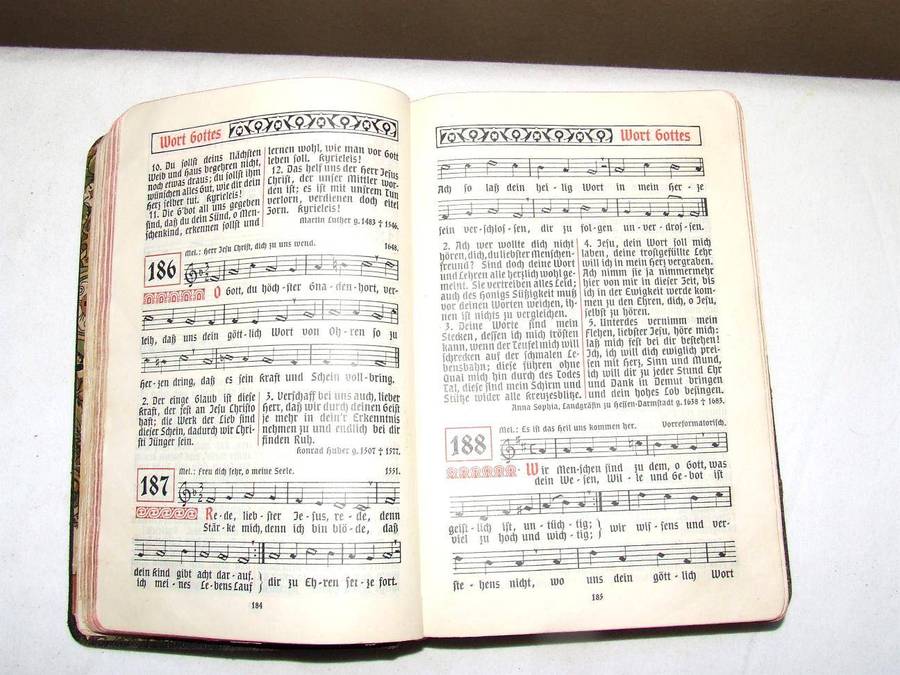 Wort Gottes
10. Du sollst deins Nächsten
Weib und Haus begehren nicht,
noch etwas draus; du sollst ihm
wünschen alles Gut, wie dir dein
Herz selber tut. Kyrieleis!
11. Die G'bot all uns gegeben
sind, daß du dein Sünd, o Men-
schenkind, erkennen sollst und
lernen wohl, wie man vor Gott
leben soll. Kyrieleis!
12. Das helf uns der Herr Jesus
Christ, der unser Mittler wor-
den ist; es ist mit unserm Tun
verlorn, verdienen doch eitel
Zorn. Kyrieleis!
Martin Luther g. 1483 † 1546.
Mel.: Herr Jesu Christ, dich zu uns wend. 1648.
186
O Gott, du höch-ster Gna-den-hort, ver-
leih, daß uns dein gött-lich Wort von Oh-ren so zu
Her-zen dring, daß es sein Kraft und Schein voll-bring.
2. Der einge Glaub ist diese
Kraft, der fest an Jesu Christo
haft; die Werk der Lieb sind
dieser Schein, dadurch wir Chri-
sti Jünger sein.
3. Verschaff bei uns auch, lieber
Herr, daß wir durch deinen Geist
je mehr in dein'r Erkenntnis
nehmen zu und endlich bei dir
finden Ruh.
Konrad Huber g. 1507 † 1577.
Mel.: Freu dich sehr, o meine Seele. 1551.
187
Re-de, lieb-ster Je-sus, re-de, denn
Stär-ke mich, denn ich bin blö-de, daß
dein Kind gibt acht dar-auf.
ich mei-nes Le-bens Lauf
dir zu Eh-ren set-ze fort.
184
Wort Gottes
Ach so laß dein hei-lig Wort in mein Her-ze
sein ver-schlos-sen, dir zu fol-gen un-ver-dros-sen.
2. Ach wer wollte dich nicht
hören, dich, du liebster Menschen-
freund? Sind doch deine Wort
und Lehren alle herzlich wohl ge-
meint. Sie vertreiben alles Leid;
auch des Honigs Süßigkeit muß
vor deinen Worten weichen, ih-
nen ist nichts zu vergleichen.
3. Deine Worte sind mein
Stecken, dessen ich mich trösten
kann, wenn der Teufel mich will
schrecken auf der schmalen Le-
bensbahn; diese führen ohne
Qual mich hin durch des Todes
Tal, diese sind mein Schirm und
Stütze wider alle Kreuzeshitze.
4. Jesu, dein Wort soll mich
laben, deine trosterfüllte Lehr
will ich in mein Herz vergraben.
Ach nimm sie ja nimmermehr
hier von mir in dieser Zeit, bis
ich in der Ewigkeit werde kom-
men zu den Ehren, dich, o Jesu,
selbst zu hören.
5. Unterdes vernimm mein
Flehen, liebster Jesu, höre mich:
laß mich fest bei dir bestehen!
Ich, ich will dich ewiglich prei-
sen mit Herz, Sinn und Mund,
ich will dir zu jeder Stund Ehr
und Dank in Demut bringen
und dein hohes Lob besingen.
Anna Sophia, Landgräfin zu Hessen-Darmstadt g. 1638 † 1683.
Mel.: Es ist das Heil uns kommen her. Vorreformatorisch.
188
Wir Men-schen sind zu dem, o Gott, was
dein We-sen, Wil-le und Ge-bot ist
geist-lich ist, un-tüch-tig;
viel zu hoch und wich-tig;
wir wis-sens und ver-
ste-hens nicht, wo uns dein gött-lich Wort
185